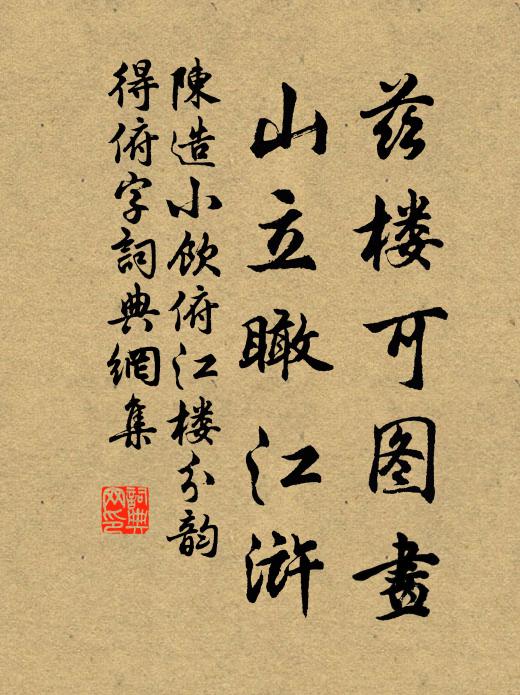 兹楼可图畫
山立瞰江浒
陳造小飲俯江楼分韵
得俯字詞典網集
詞典网印